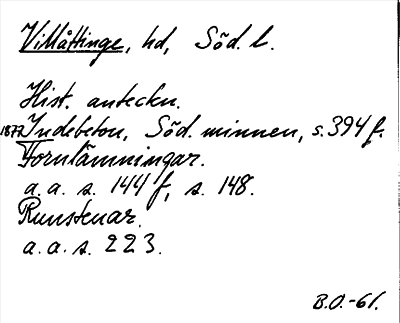 Villåttinge, hd, Söd. l.
Hist. anteckn.
1877 Indebetou, Söd. minnen, s. 394 f.
Fornlämningar.
a. a. s. 144 f, s. 148.
Runstenar.
a. a. s. 223.
B.O.-61.